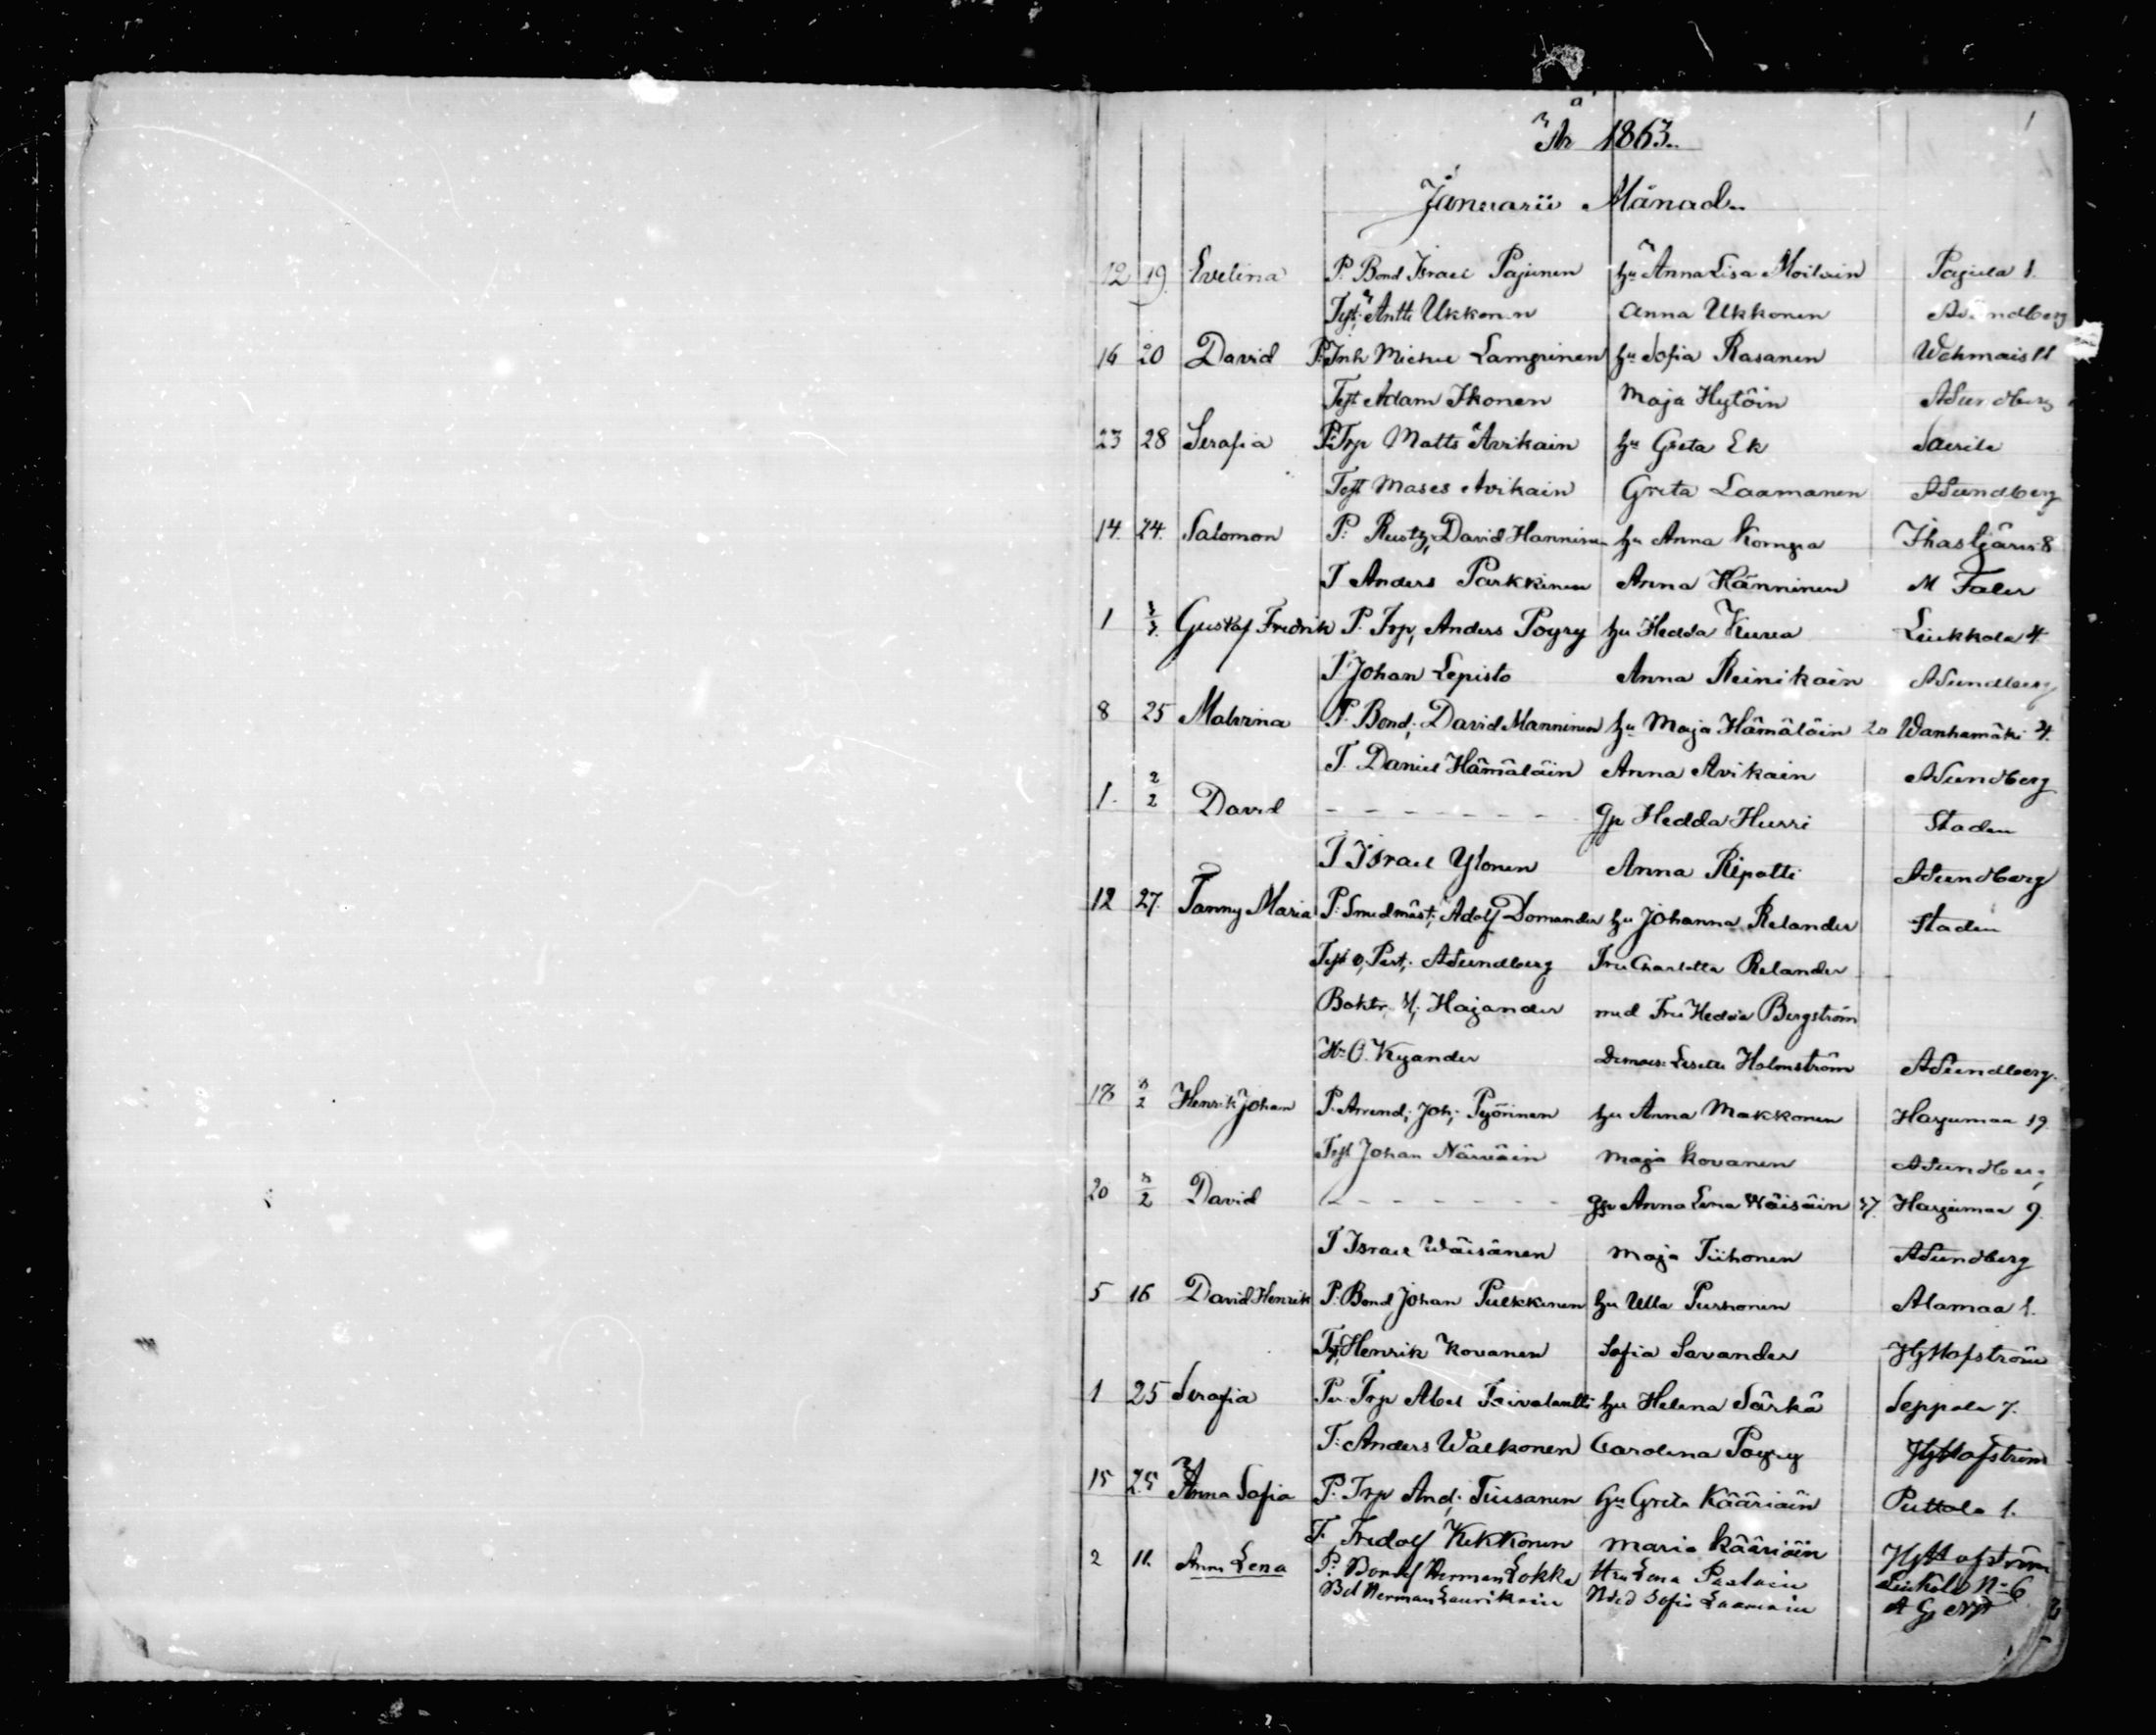 1
År 1863.
Januarii Månad.
12 19 Evelina P. Bond Israel Pajunen hu Anna Lisa Moilain Pajula 1.
Test. Antti Ukkonen Anna Ukkonen A Sundberg
16 20 David P: Inh Michel Lamppinen hu Sofia Rasanen Wehmais 11
Test Adam Ikonen Maja Hytöin A Sundberg
23 28 Serafia P: Trp Matts Avikain hu Greta Ek
Test Moses Avikain Greta Laamanen A Sundberg
14. 24. Salomon P: Rusth, David Hanninen hu Anna Komppa Ihastjärvi 8
T Anders Parkkinen Anna Hänninen M Faler
1 Gustaf Fredrik P. Trp, Anders Poyry hu Hedda Kurva Liukkola 4.
T Johan Lepisto Anna Reinikain A Sundberg
8 25 Malvina P: Bond, David Manninen hu Maja Hämäläin 20 Wanhamäki 4.
T. Daniel Hämäläin Anna Avikain A Sundberg
1. 2/2 David - - - - - - - - Qp Hedda Hurri Staden
T Israel Ylonen Anna Ripatti A Sundberg
12 27. Fanny Maria P: Smedmäst; Adolf Domander hu Johanna Relander Staden
Test O, Past; A Sundberg Fru Charlotta Relander
Boktr. Hajander med Fru Hedda Bergström
Hr O. Kyander Demois: Lisette Holmström A Sundberg.
18 3/2 Henrik Johan P. Arrend; Joh; Pyörinen hu Anna Makkonen Harjumaa 19
Test Johan Närväin Maja Kovanen A Sundberg
20 3/2 David - - - - - - - - Qp Anna Lena Wäisäin 37. Harjumaa 9.
T Israel Wäisänen Maja Tiihonen A Sundberg
5 16 David Henrik P. Bond Johan Pulkkinen hu Ulla Purhonen Alamaa 1.
Test, Henrik Kovanen Sofia Savander HG Hofström
1 25 Serafia P. Trp Abel Taivalantti hu Helena Särkä Seppala 7.
T: Anders Walkonen Carolina Poyry HG Hofström
15 25 Anna Sofia P: Trp And; Tiusanen hu Greta Kääriäin Puttola 1.
T. Fredolf Kekkonen Maria Kääriäin HG Hofström
2 11. Anna Lena P: Herman Lokka Hru Lena Liukola No 6
Herman Laurikain Sofia A G